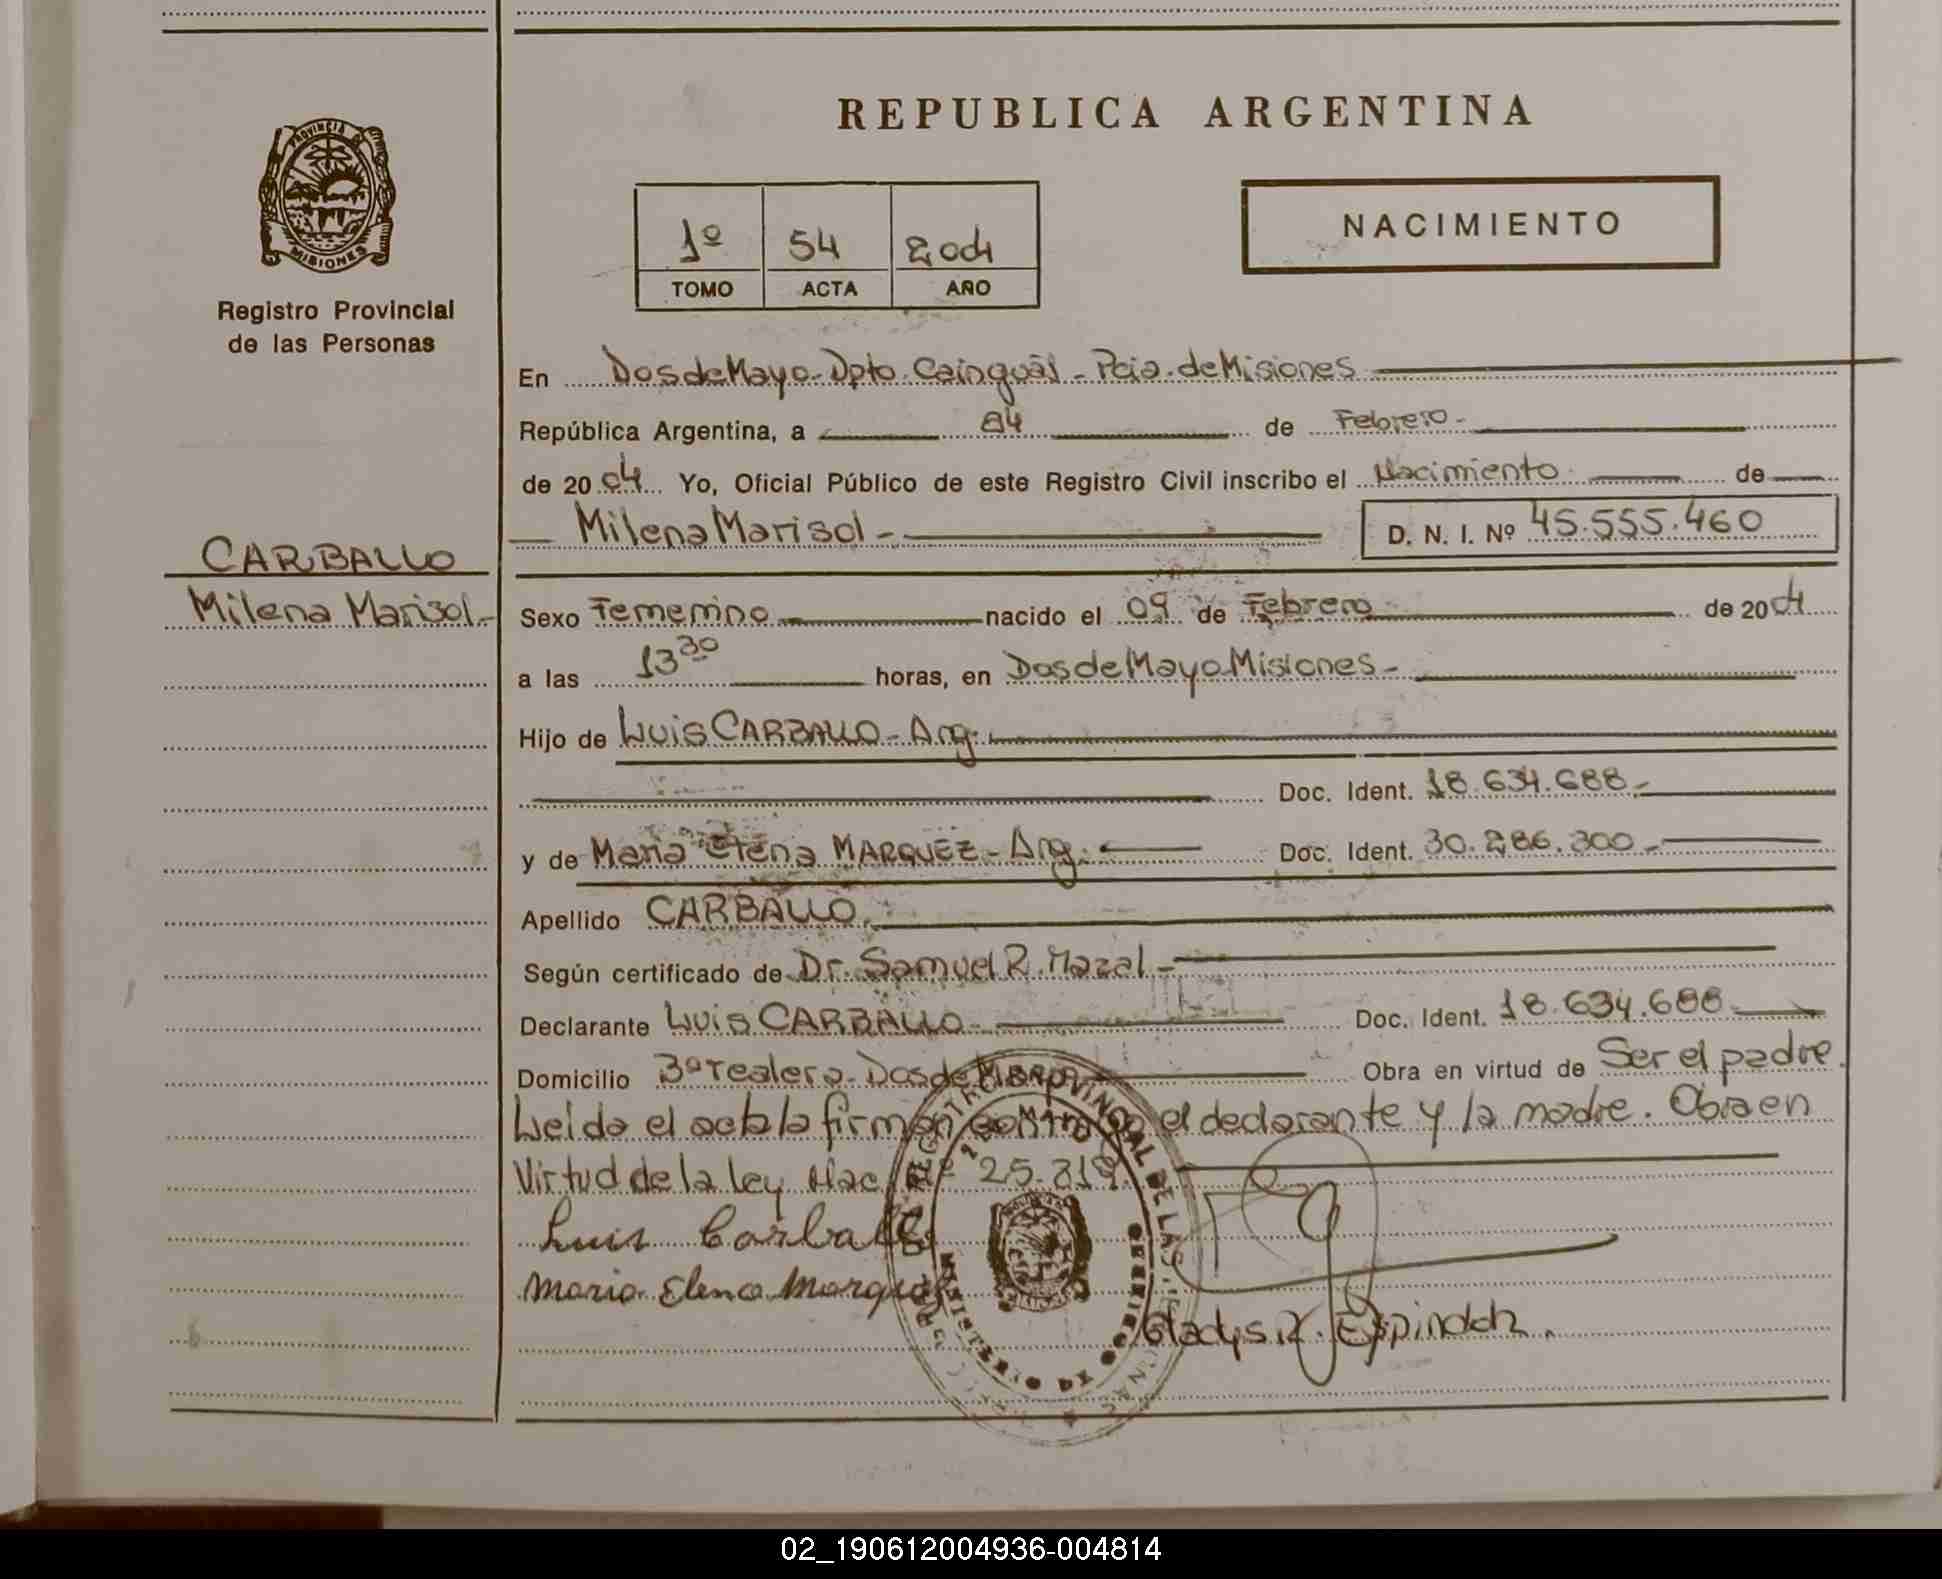 REPUBLICA ARGENTINA
PROVINCIA DE
MISIONES
Registro Provincial
de las Personas
1º 54 2004
TOMO ACTA AÑO
NACIMIENTO
En Dos de Mayo - Dpto. Cainguás - Pcia. de Misiones
República Argentina, a 24 de Febrero -
de 2004 Yo, Oficial Público de este Registro Civil inscribo el Nacimiento de
Milena Marisol - D. N. I. Nº 45.555.460
CARBALLO
Milena Marisol -
Sexo Femenino nacido el 09 de Febrero de 2004
a las 13 30 horas, en Dos de Mayo Misiones -
Hijo de Luis CARBALLO - Arg.
Doc. Ident. 18.634.688 -
y de Maria Elena MARQUEZ - Arg. Doc. Ident. 30.286.300 -
Apellido CARBALLO
Según certificado de Dr. Samuel R. Mazal -
Declarante Luis CARBALLO Doc. Ident. 18.634.688
Domicilio 3º Tealera - Dos de Mayo Obra en virtud de Ser el padre
Leida el acta la firman conmigo el declarante y la madre. Obra en
Virtud de la ley Nac. Nº 25.819
Luis Carballo
Maria Elena Marquez
Gladys R. Espindola
02_190612004936-004814